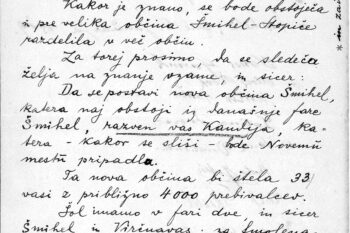 Kakor je znano, se bode obstoječa
in pre velika občina Šmihel-Stopiče
razdelila v več občin.
Za torej prosimo, da se sledeča
želja na znanje vzame, in sicer:
Da se postavi nova občina Šmihel,
katera naj obstoji iz današnje fare
Šmihel, razven vas Kandija, ka-
tera - kakor se sliši - bode Novemu
mestu pripadla.
Ta nova občina bi štela 33
vasi z približno 4000 prebivalcev.
Šol imamo v fari dve, in sicer
Šmihel in Viřinavas: za Smolena